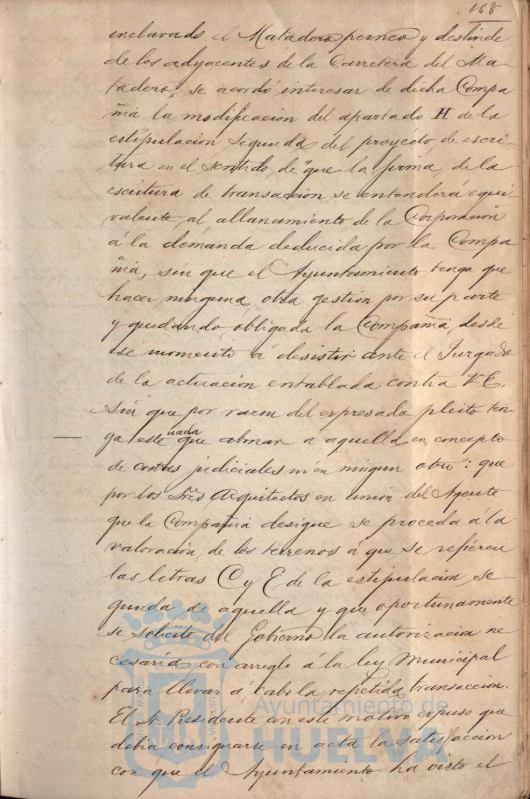 168
enclavado el Matadero perneo y deslinde
de los adyacentes de la Carretera del Ma-
tadero, se acordó interesar de dicha Compa
ñia la modificacion del apartado H de la
estipulación segunda del proyecto de escri-
tura en el sentido de que la firma de la
escritura de transaccion se entenderá equi
valente al allanamiento de la Corporacion
á la demanda deducida por la Compa
ñia, sin que el Ayuntamiento tenga que
hacer ninguna otra gestion por su parte
y quedando obligada la Compañia desde
ese momento á desistir ante el Juzgado
de la actuacion entablada contra V. E.
sin que por razon del expresado pleito ten-
ga este que abonar nada á aquella en concepto
de costas judiciales ni en ningun otro: que
por los Sres Arquitectos en union del Agente
que la Compañia designe se proceda á la
valoracion de los terrenos á que se refieren
las letras C y E de la estipulacion se
gunda de aquella y que oportunamente
se solicite del Gobierno la autorizacion ne
cesaria con arreglo á la ley Municipal
para llevar á cabo la repetida transaccion.
El Sr. Presidente con este motivo expuso que
debia consignarse en acta la satisfaccion
con que el Ayuntamiento ha visto el
Ayuntamiento de
HUELVA